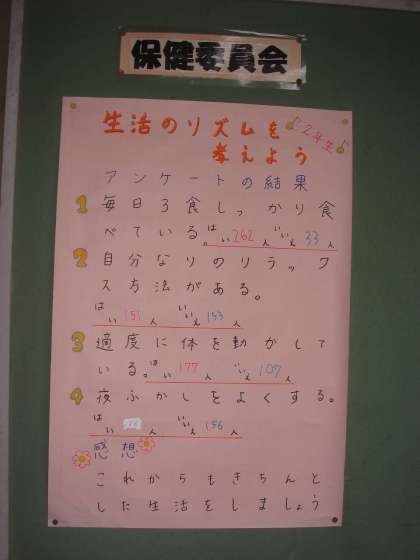 保健委員会
生活のリズムを
♪2年生♪
考えよう
アンケートの結果
1 毎日3食しっかり食
べている。はい262人 いいえ33人
2 自分なりのリラック
ス方法がある。
はい151人 いいえ153人
3 適度に体を動かして
いる。はい177人 いいえ107人
4 夜ふかしをよくする。
はい 人 いいえ156人
感想
これからもきちんと
した生活をしましょう